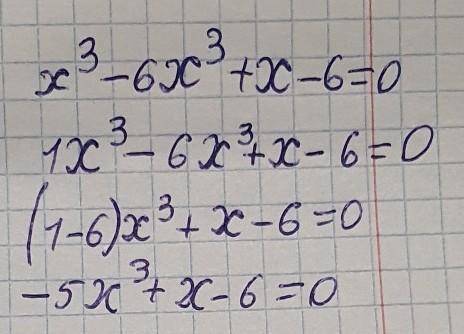 x³-6x³+x-6=0
1x³-6x³+x-6=0
(1-6)x³+x-6=0
-5x³+x-6=0